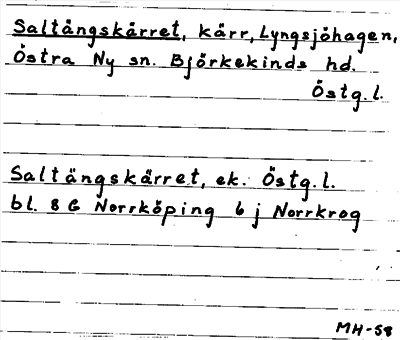 Saltängskärret, kärr, Lyngsjöhagen,
Östra Ny sn. Björkekinds hd.
Östg.l.
Saltängskärret, ek. Östg.l.
bl. 8 G Norrköping 6 j Norrkrog
MH-58